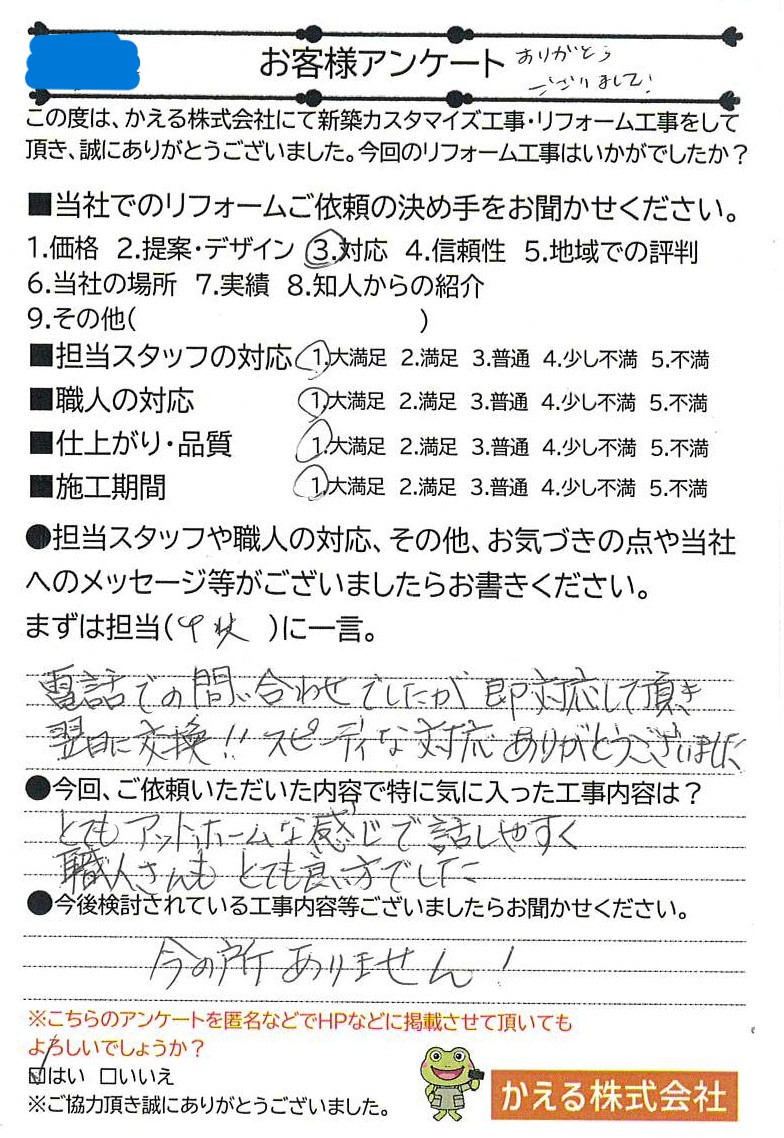 お客様アンケート ありがとう
ございまして!
この度は、かえる株式会社にて新築カスタマイズ工事・リフォーム工事をして
頂き、誠にありがとうございました。今回のリフォーム工事はいかがでしたか?
■当社でのリフォームご依頼の決め手をお聞かせください。
1.価格 2.提案・デザイン 3.対応 4.信頼性 5.地域での評判
6.当社の場所 7.実績 8.知人からの紹介
9.その他( )
■担当スタッフの対応 1.大満足 2.満足 3.普通 4.少し不満 5.不満
■職人の対応 1.大満足 2.満足 3.普通 4.少し不満 5.不満
■仕上がり・品質 1.大満足 2.満足 3.普通 4.少し不満 5.不満
■施工期間 1.大満足 2.満足 3.普通 4.少し不満 5.不満
●担当スタッフや職人の対応、その他、お気づきの点や当社
へのメッセージ等がございましたらお書きください。
まずは担当( )に一言。
電話での問い合わせでしたが即対応して頂き
翌日に交換!! スピーディな対応ありがとうございました
●今回、ご依頼いただいた内容で特に気に入った工事内容は?
とてもアットホームな感じで話しやすく
職人さんもとても良い方でした
●今後検討されている工事内容等ございましたらお聞かせください。
今の所ありません!
※こちらのアンケートを匿名などでHPなどに掲載させて頂いても
よろしいでしょうか?
☑はい □いいえ
※ご協力頂き誠にありがとうございました。
かえる株式会社